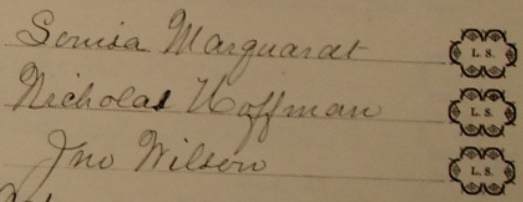 Louisa Marquardt L. S.
Nicholas Hoffman L. S.
Jno Wilson L. S.